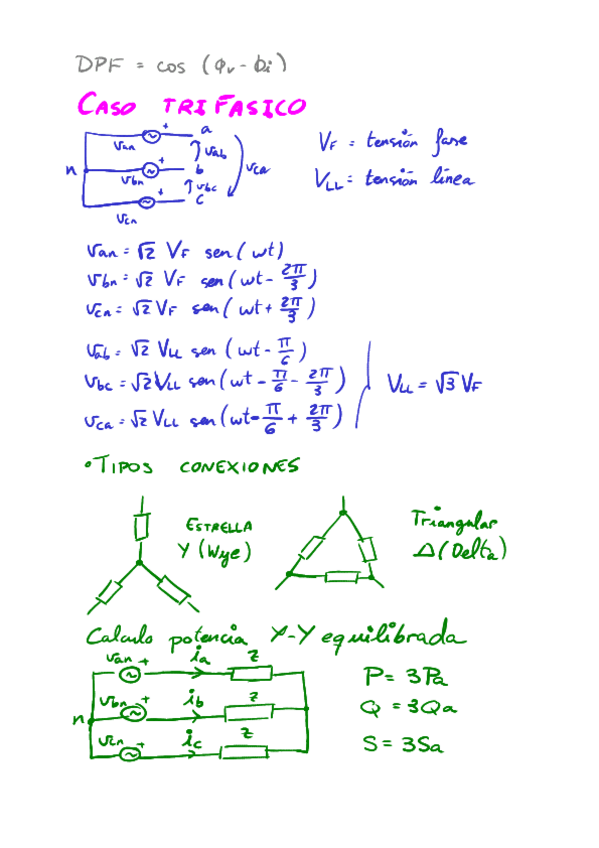 DPF = cos (φv - φi)
CASO TRIFASICO
van + a
vab
n vbn + b vca
vbc
vcn + c
VF = tensión fase
VLL = tensión línea
van = √2 VF sen(wt)
vbn = √2 VF sen(wt - 2π/3)
vcn = √2 VF sen(wt + 2π/3)
vab = √2 VLL sen(wt - π/6)
vbc = √2 VLL sen(wt - π/6 - 2π/3)
vca = √2 VLL sen(wt - π/6 + 2π/3)
VLL = √3 VF
• TIPOS CONEXIONES
ESTRELLA
Y (Wye)
Triangular
Δ (Delta)
Calculo potencia Y-Y equilibrada
van + ia z
n vbn + ib z
vcn + ic z
P = 3Pa
Q = 3Qa
S = 3Sa